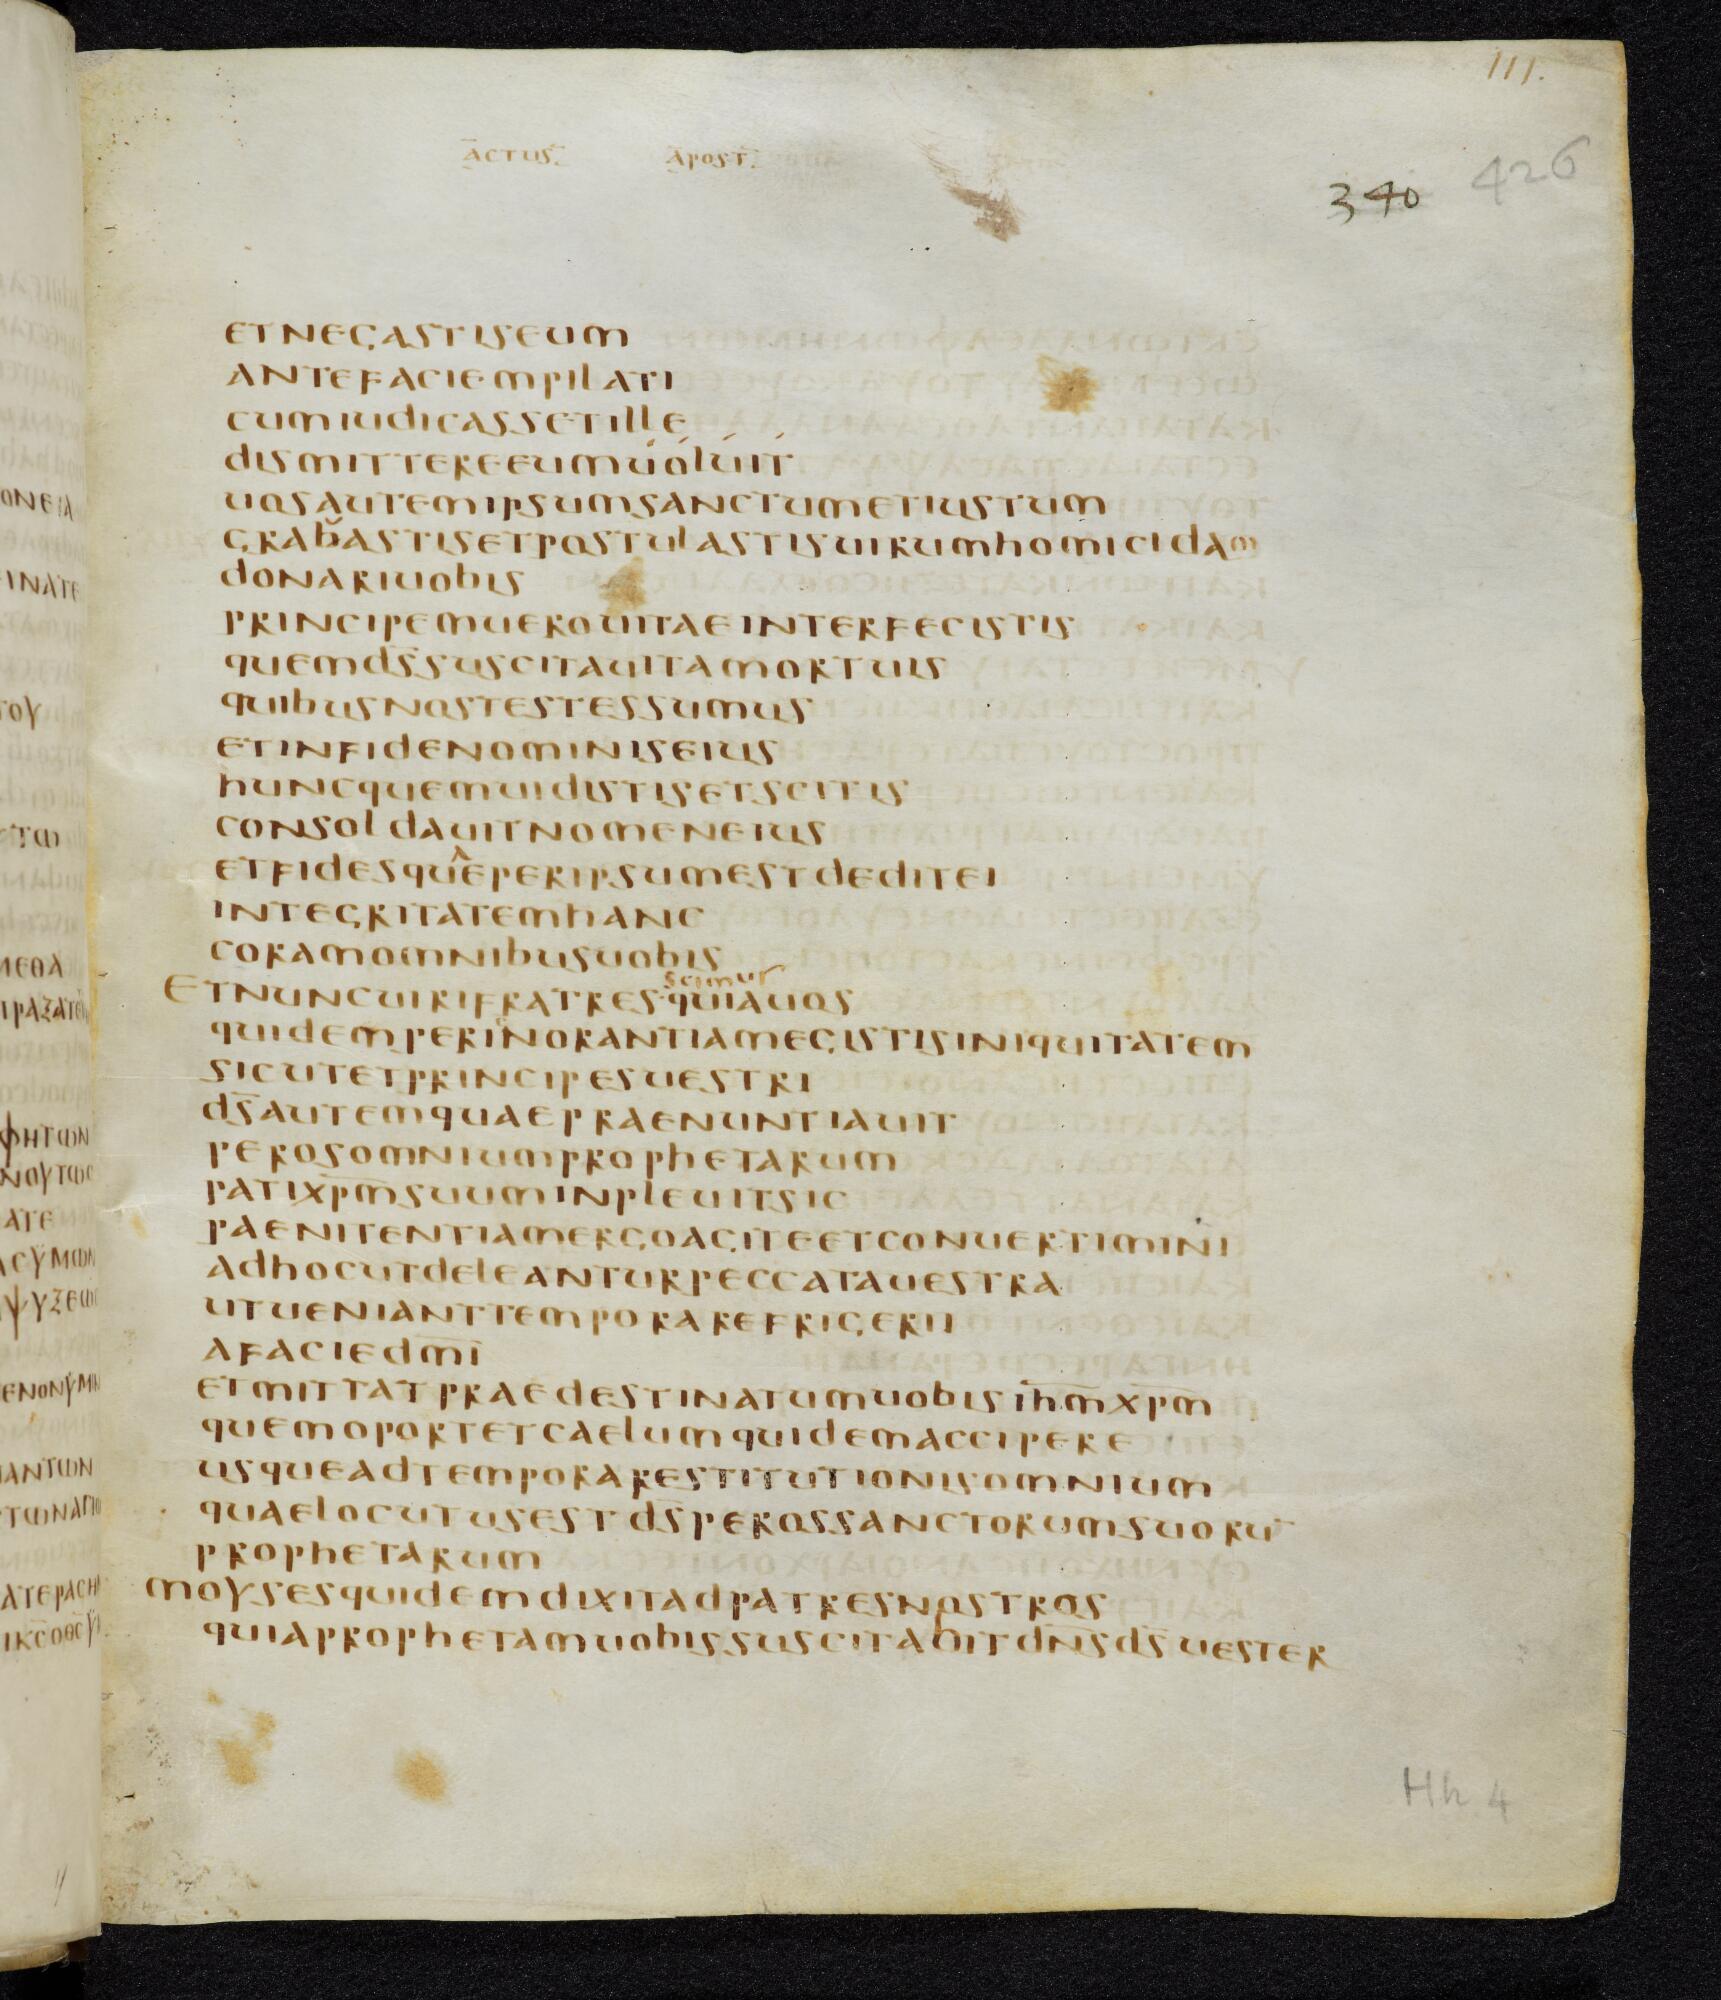 111.
ACTUS. APOST.
340 426
ETNEGASTISEUM
ANTEFACIEMPILATI
CUMIUDICASSETILLE
DISMITTEREEUMUOLUIT
UOSAUTEMIPSUMSANCTUMETIUSTUM
GRABASTISETPOSTULASTISUIRUMHOMICIDAM
DONARIUOBIS
PRINCIPEMUEROUITAEINTERFECISTIS
QUEMDS̅SUSCITAUITAMORTUIS
QUIBUSNOSTESTESSUMUS
ETINFIDENOMINISEIUS
HUNCQUEMUIDISTISETSCITIS
CONSOLDAUITNOMENEIUS
ETFIDESQUEPERIPSUMESTDEDITEI
INTEGRITATEMHANC
CORAMOMNIBUSUOBIS
scimus
ETNUNCUIRIFRATRESQUIAUOS
QUIDEMPERINORANTIAMEGISTISINIQUITATEM
SICUTETPRINCIPESUESTRI
DS̅AUTEMQUAEPRAENUNTIAUIT
PEROSOMNIUMPROPHETARUM
PATIXP̅M̅SUUMINPLEUITSIC
PAENITENTIAMERGOAGITEETCONUERTIMINI
ADHOCUTDELEANTURPECCATAUESTRA
UTUENIANTTEMPORAREFRIGERII
AFACIEDM̅I̅
ETMITTATPRAEDESTINATUMUOBISIH̅M̅XP̅M̅
QUEMOPORTETCAELUMQUIDEMACCIPERE
USQUEADTEMPORARESTITUTIONISOMNIUM
QUAELOCUTUSESTDS̅PEROSSANCTORUMSUORU̅
PROPHETARUM
MOYSESQUIDEMDIXITADPATRESNOSTROS
QUIAPROPHETAMUOBISSUSCITABITDN̅S̅DS̅UESTER
Hh 4